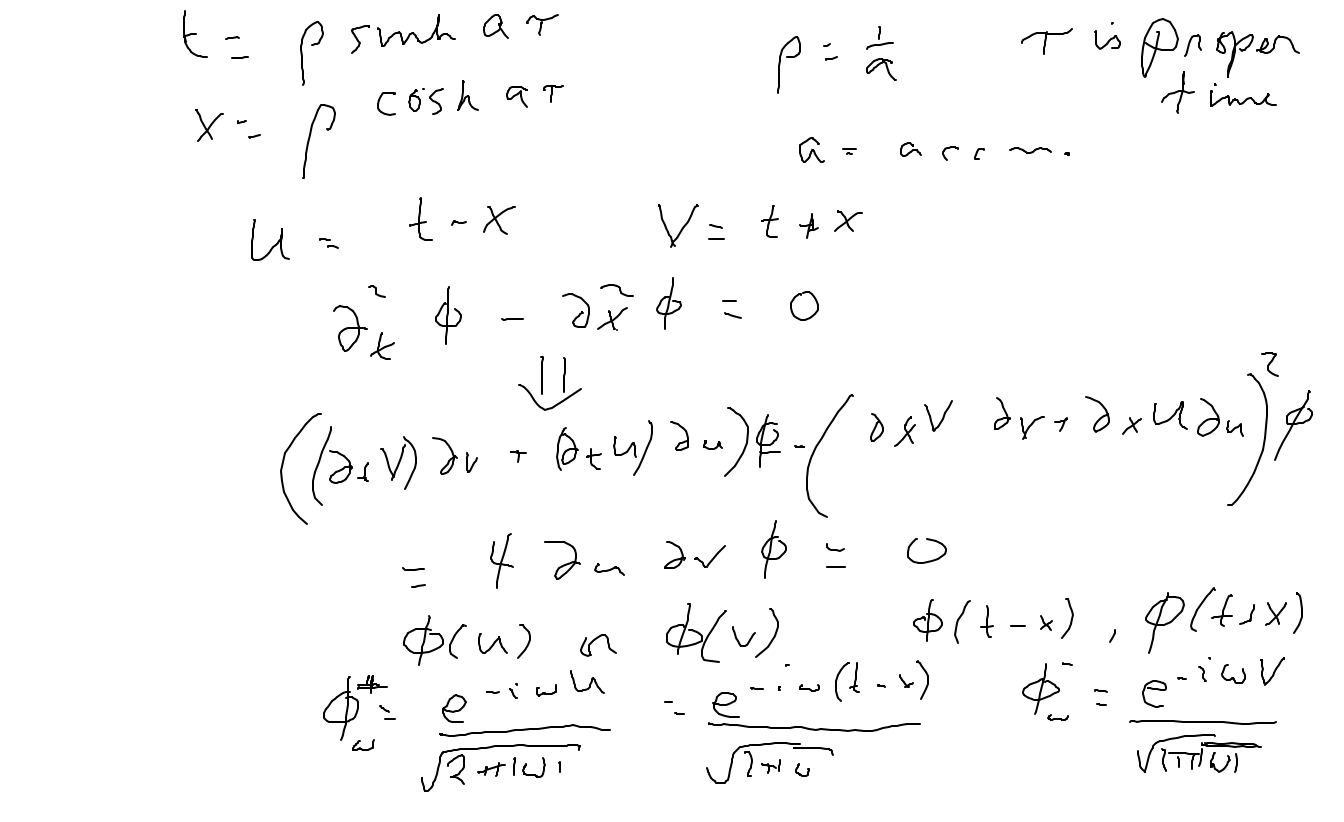 t = ρ sinh aτ
x = ρ cosh aτ
ρ = 1/a τ is proper time
a = accn.
u = t - x V = t + x
∂²ₜ φ - ∂²ₓ φ = 0
⇓
((∂ₜV) ∂v + (∂ₜu) ∂u) φ - (∂ₓV ∂v + ∂ₓu ∂u)² φ
= 4 ∂u ∂v φ = 0
φ(u) or φ(v) φ(t-x), φ(t+x)
φ⁺_ω = e^{-iωu}/√(2π|ω|) = e^{-iω(t-x)}/√(2πω) φ⁻_ω = e^{-iωV}/√(2π|ω|)